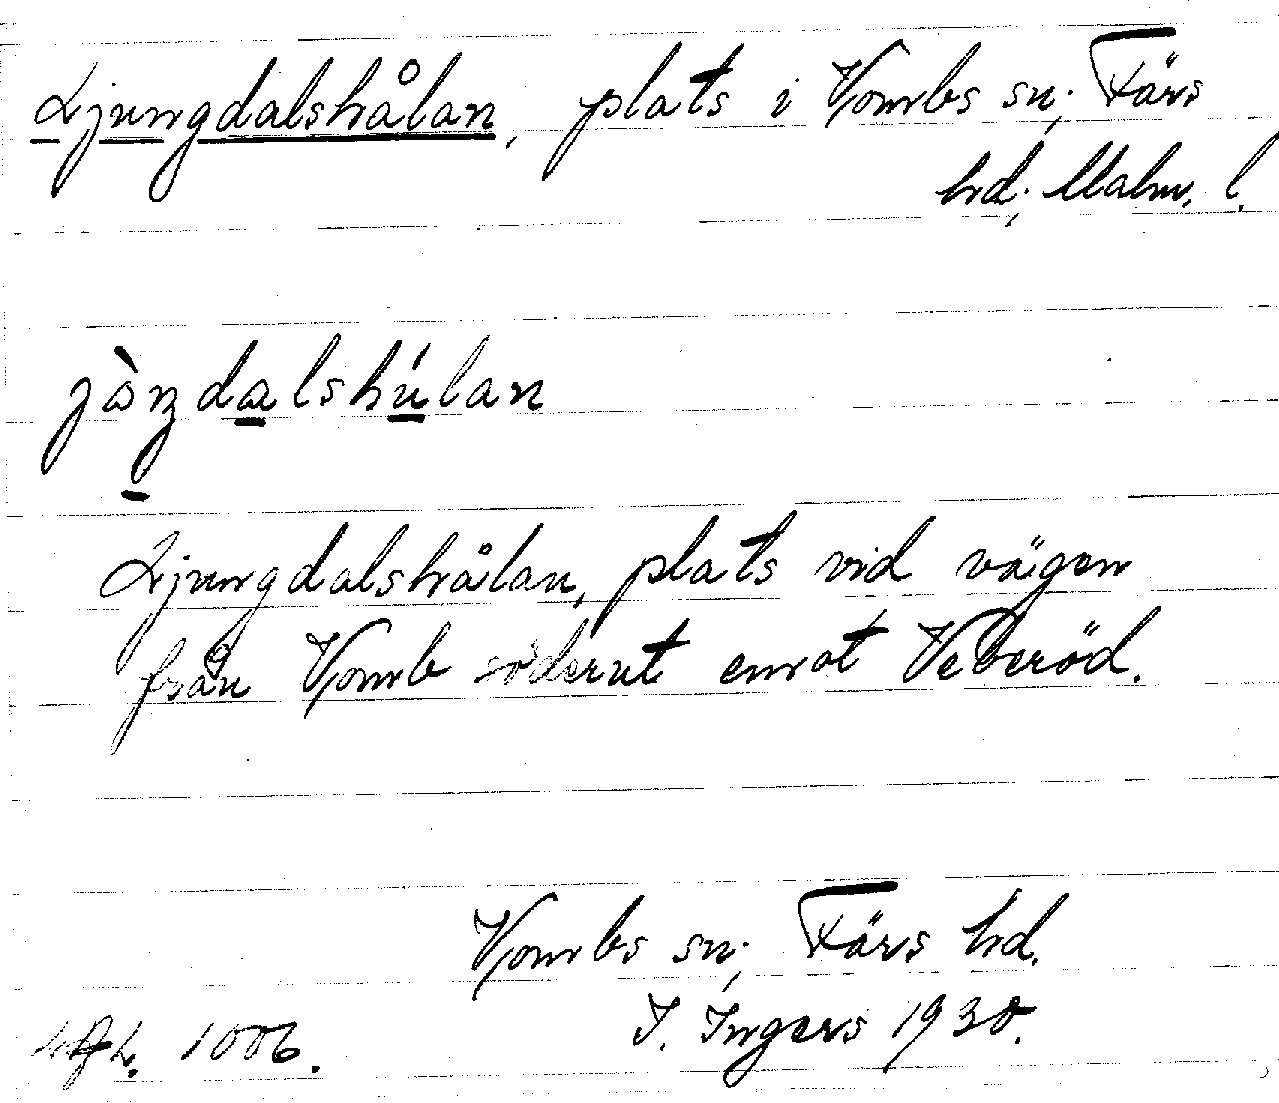 Ljungdalshålan, plats i Vombs sn; Färs
hd; Malm. l.
jòŋdalshúlan
Ljungdalshålan, plats vid vägen
från Vomb söderut emot Veberöd.
Vombs sn; Färs hd.
I. Ingers 1930.
1006.